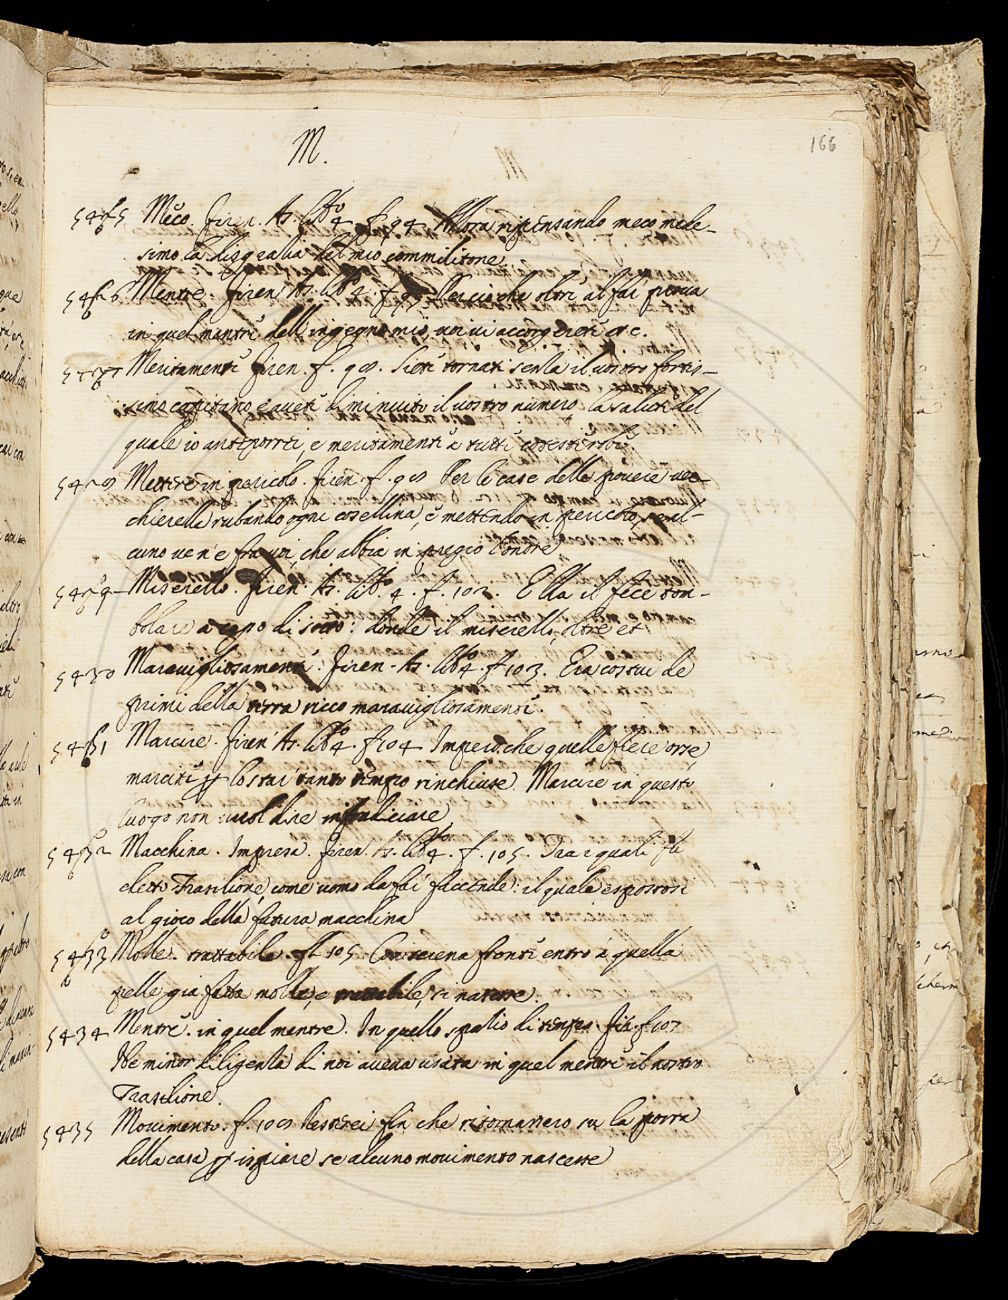 M.
166
5425 Meco. Firen. As. lib.º 4 f. 94 Allora ripensando meco mede-
simo la disgratia del mio commilitone
5426 Mentre. Firen. As. lib. 2. f. Percioche oltre al far prova
in quel mentre dell'ingegno mio, voi vi accorgerete &c.
5427 Meritamente Firen. f. 98. Siete tornati senza il vostro fortis-
simo capitano e avete diminuito il vostro numero. la salute del
quale io anteporrei, e meritamente a tutte coteste robe
5428 Mettere in pericolo. Firen. f. 98 Per le case delle povere vec-
chierelle rubando ogni cosellina, e mettendo in pericolo, se al-
cuno ve n'è fra voi, che abbia in pregio l'onore
5429 Miserello. Firen. As. lib.º 4. f. 102. Ella il fece tom-
bolare a capo di sotto: donde il miserello, oltre et.
5430 Maravigliosamente. Firen. As. lib.º 4. f. 103. Era costui de
primi della terra ricco maravigliosamente.
5431 Marcire. Firen. As. lib.º 4. f. 104 Imperò che quelle fiere orse,
marcite per lo star tanto tempo rinchiuse. Marcire in questo
luogo non vuol dire infradiciare
5432 Macchina. Impresa. Firen. As. lib.º 4. f. 105. Tra i quali fu
eletto Trasilione, come uomo da far faccende: il quale espostosi
al gioco della futura macchina
5433 Molle. trattabile. f. 105. Con serena fronte entrò in quella
pelle già fatta molle, e trattabile
5434 Mentre. in quel mentre. In quello spazio di tempo. Fir. f. 107
Ne minor diligenza di noi aveva usata in quel mentre il nostro
Trasilione.
5435 Movimento. f. 108 Restrei fin che ritornassero su la porta
della casa per ispiare se alcuno movimento nascesse